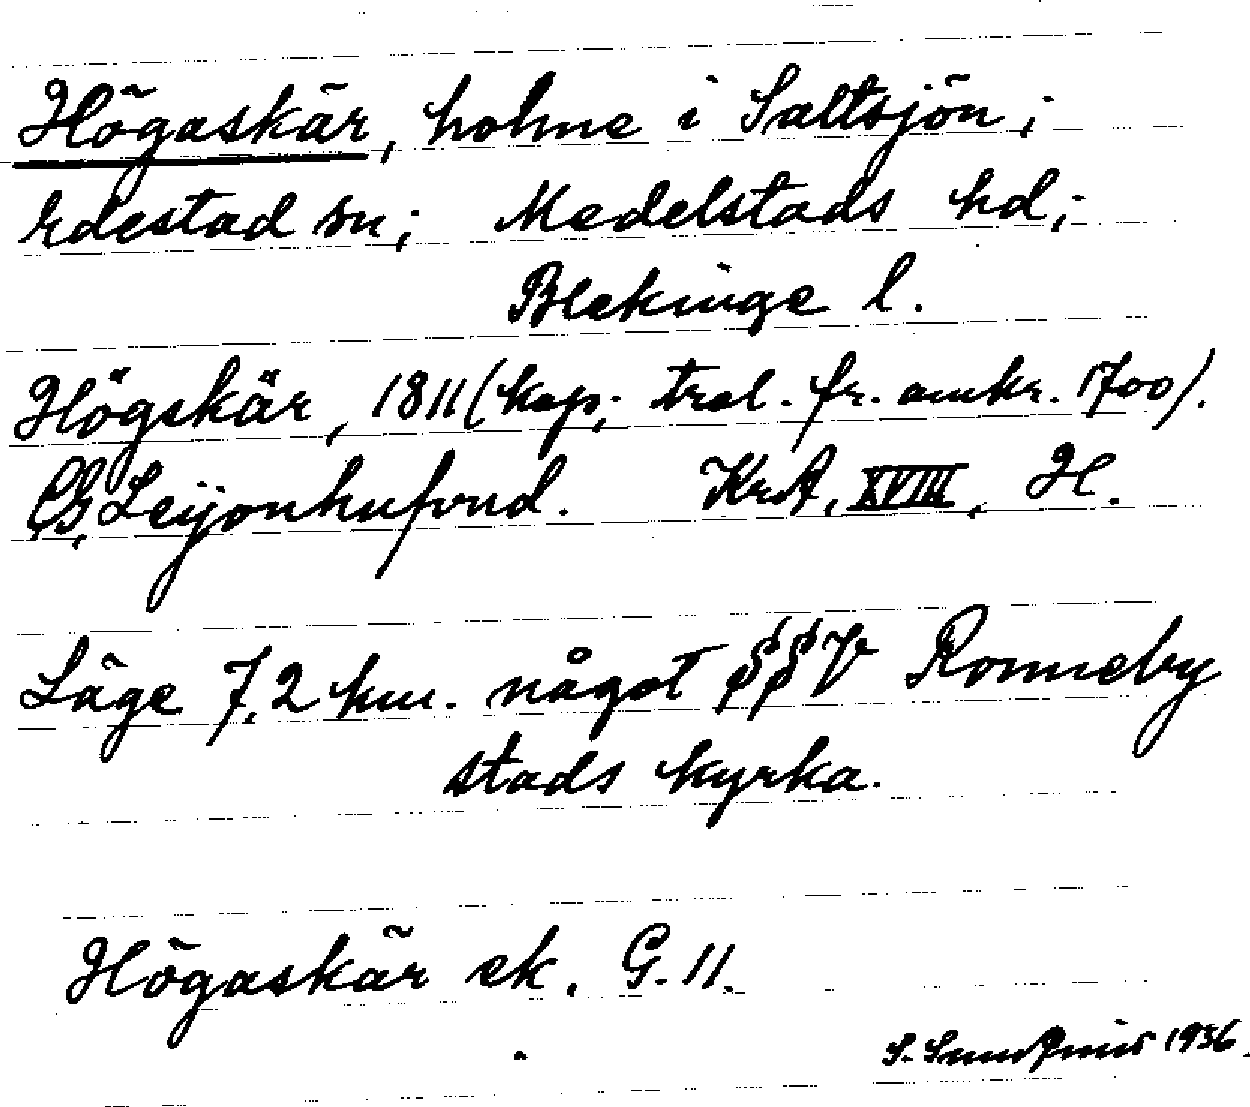 Högaskär, holme i Saltsjön;
Edestad sn; Medelstads hd;
Blekinge l.
Högskär, 1811 (kop; trol. fr. omkr. 1700).
CG. Leijonhufvud. KrA, XVIII, H.
Läge 7,2 km. något SSV Ronneby
stads kyrka.
Högaskär ek. G. 11.
S. 1936.